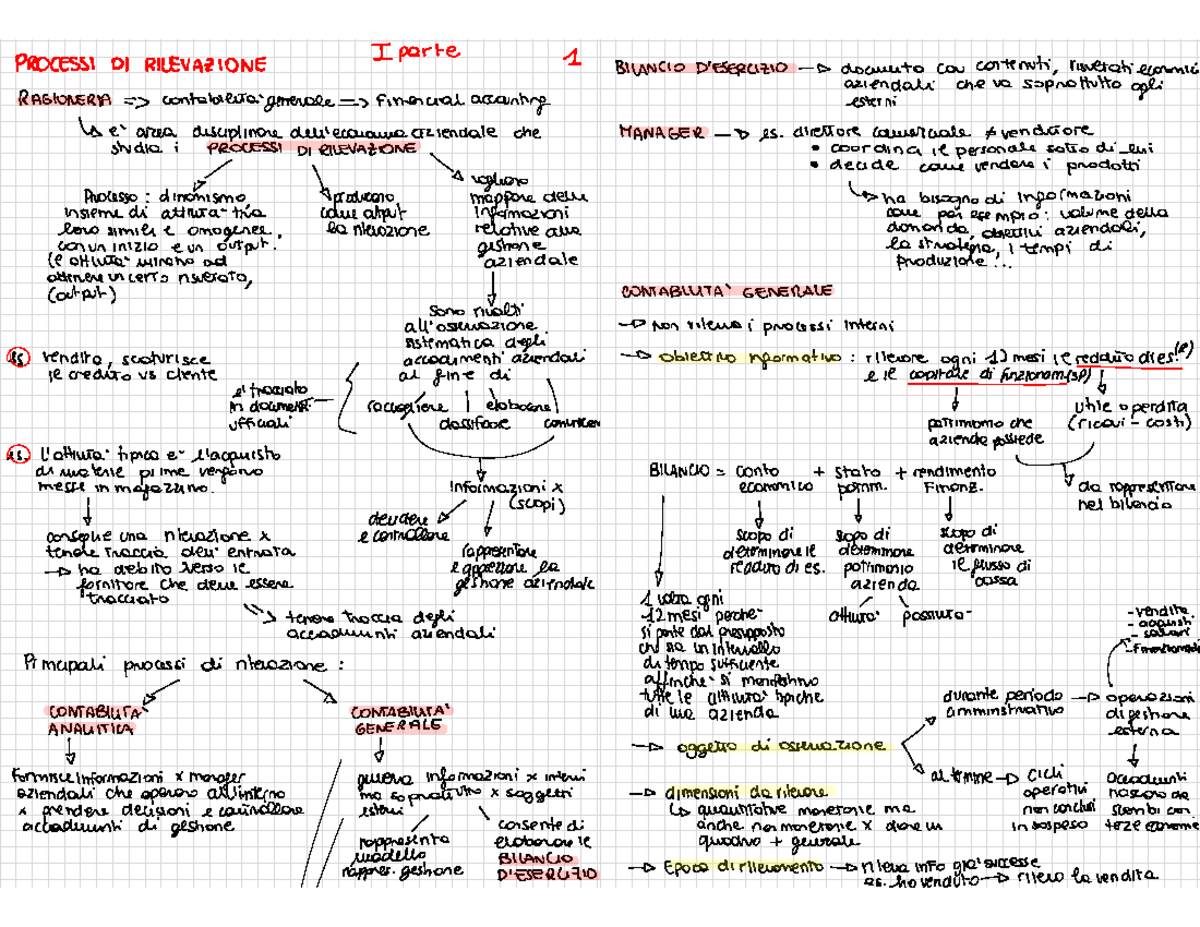 I parte
1
PROCESSI DI RILEVAZIONE
RAGIONERIA => contabilità generale -> Financial accounting
è area disciplinare dell'economia aziendale che
studia i PROCESSI DI RILEVAZIONE
Processo: dinamismo
insieme di attività tra
loro simili e omogenee,
con un inizio e un output.
(le attività mirano ad
ottenere un certo risultato,
(output)
producono
come output
la rilevazione
vogliono
mappare delle
informazioni
relative alla
gestione
aziendale
sono rivolti
all'osservazione
sistematica degli
accadimenti aziendali
al fine di
es. vendita, scaturisce
il credito vs cliente
è tracciato
in documenti
ufficiali
raccogliere
classificare
elaborare
comunicare
es. l'attività tipica è l'acquisto
di materie prime vengono
messe in magazzino.
consegue una rilevazione x
tenere traccia dell'entrata
-> ha debito verso il
fornitore che deve essere
tracciato
tenere traccia degli
accadimenti aziendali
informazioni x
(scopi)
decidere
e controllare
rappresentare
e apprezzare la
gestione aziendale
Principali processi di rilevazione:
CONTABILITA'
ANALITICA
fornisce informazioni x manager
aziendali che operano all'interno
x prendere decisioni e controllare
accadimenti di gestione
CONTABILITA'
GENERALE
genera informazioni x interni
ma soprattutto x soggetti
esterni
rappresenta
modello
rappres. gestione
consente di
elaborare il
BILANCIO
D'ESERCIZIO
BILANCIO D'ESERCIZIO -> documento con contenuti, risultati economici
aziendali che va soprattutto agli
esterni
MANAGER -> es. direttore commerciale ≠ venditore
• coordina il personale sotto di lui
• decide come vendere i prodotti
ha bisogno di informazioni
come per esempio: volume della
domanda, obiettivi aziendali,
la strategia, i tempi di
produzione...
CONTABILITA' GENERALE
-> non rileva i processi interni
-> obiettivo informativo: rilevare ogni 12 mesi il reddito di es.
e il capitale di funzionam. (SP)
patrimonio che
azienda possiede
utile o perdita
(ricavi - costi)
da rappresentare
nel bilancio
BILANCIO = conto + stato + rendimento
economico patrim. Finanz.
scopo di
determinare il
reddito di es.
scopo di
determinare
patrimonio
azienda
scopo di
determinare
il flusso di
cassa
attività passività
1 volta ogni
12 mesi perché
si parte dal presupposto
che sia un intervallo
di tempo sufficiente
affinché si manifestino
tutte le attività tipiche
di una azienda
- vendita
- acquisti
- salari
- finanziamenti
-> oggetto di osservazione
durante periodo -> operazioni
amministrativo di gestione
esterna
al termine -> cicli
operativi
non conclusi
in sospeso
accadimenti
nascono da
scambi con
terze economie
-> dimensioni da rilevare
quantitative monetarie ma
anche non monetarie x dare un
quadro + generale
-> Epoca di rilevamento -> rileva info già successe
es. ho venduto -> rilevo la vendita